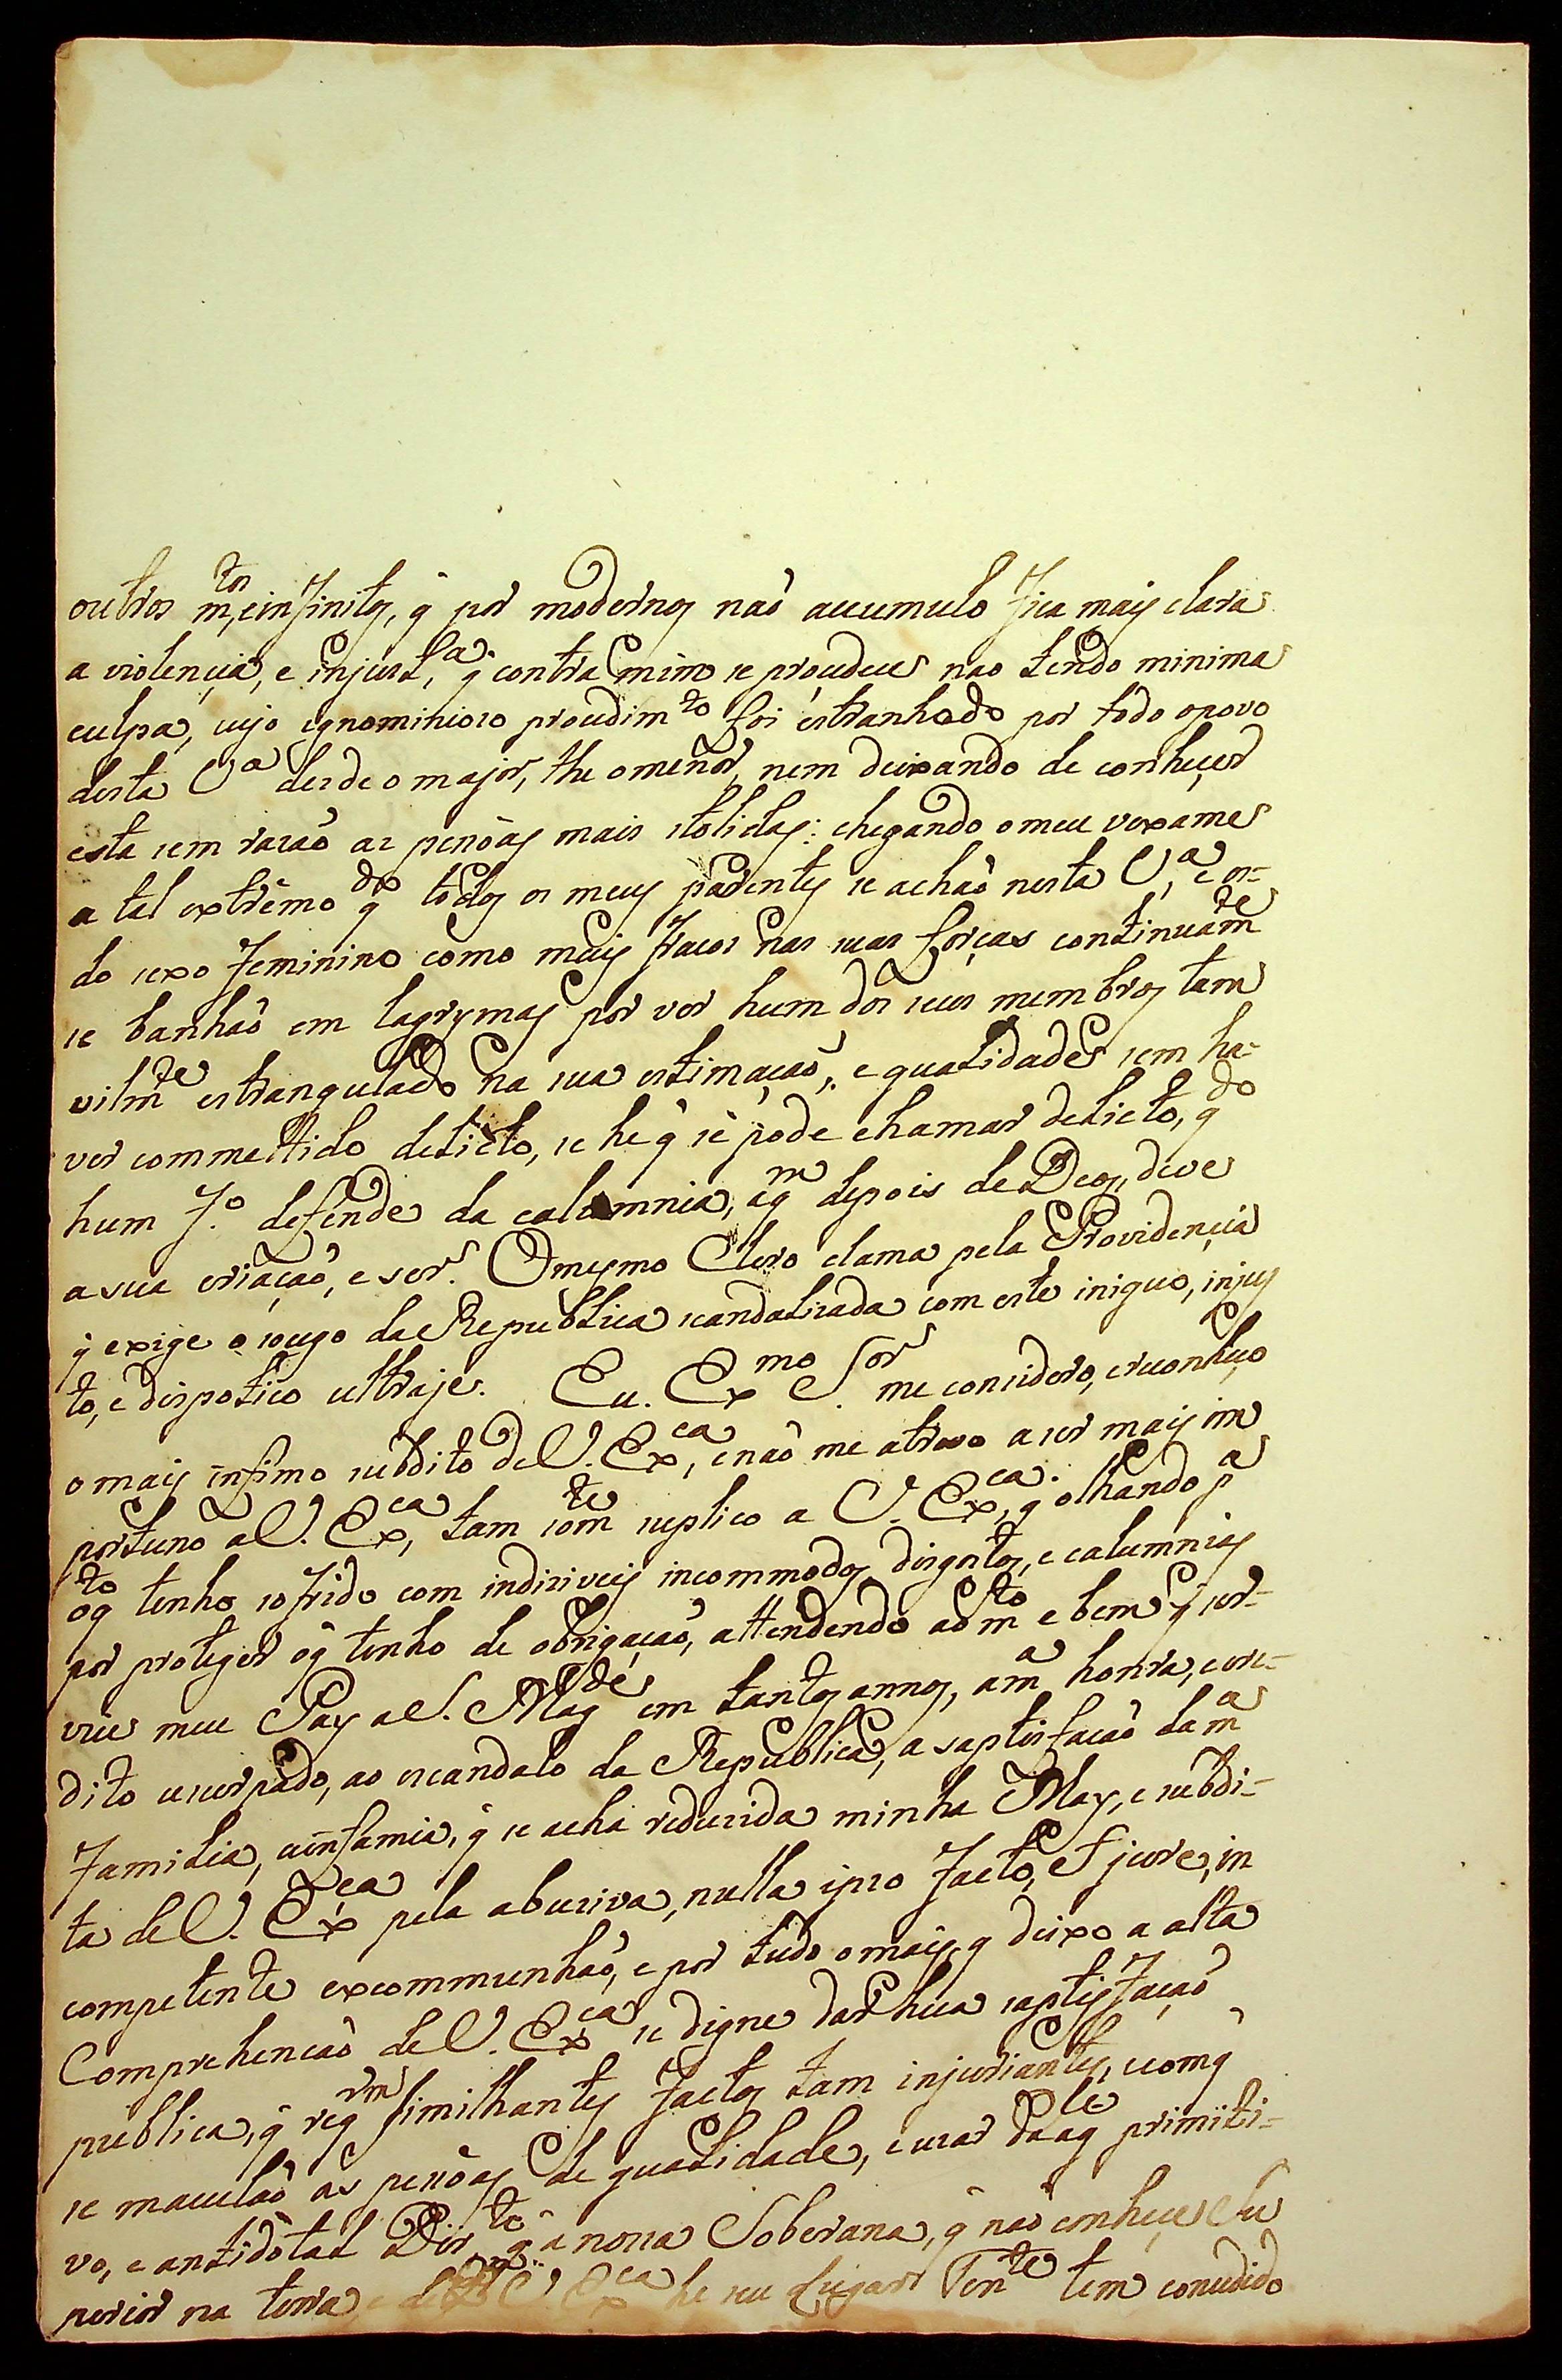 outros m.tos, e infinitos, q̃ por modernos naõ accumulo fica mais clara
a violençia, e injust.ª, q̃ contra mim se proçedeu nao tendo minima
culpa, cujo ignominioso proçedim.to foi estranhado por todo o povo
desta V.ª desde o major, the o menor, nem deixando de conheçer
esta sem razaõ as pessoas mais stolidas: chegando o meu vexame
a tal extrêmo q.do todos os meus parentes se achaõ nesta V.ª, e os
do sexo feminino como mais fracos nas suas forças continuam.te
se banhaõ em lagrymas por ver hum dos seus membros tam
vilm.te estrangulado na sua estimaçaõ, e qualidade sem ha-
ver commettido delicto, se he q̃ se pode chamar delicto, q.do
hum f.º defende da calumnia, a q.m depois de Deos, deve
a sua criaçaõ, e ser. O mesmo Clero clama pela Providençia
q̃ exige o socego da Republica scandalizada com este iniquo, injus
to, e dispotico ultraje. Eu. Ex.mo S.or me considero, e reconheço
o mais infimo subdito de V. Ex.ca, e naõ me atrevo a ser mais im
portuno a V. Ex.ca, tam som.te suplico a V. Ex.ca, q̃ olhando p.ª
o q.to tenho sofrido com indiziveis incommodos, disgostos, e calumnias
por proteger o q̃ tenho de obrigaçaõ, attendendo ao m.to e bem q̃ ser-
viu meu Pay a S. Mag.de em tantos annos, a m.ª honra, e cre-
dito usurpado, ao escandalo da Republica, a saptisfaçaõ da m.ª
familia, a infamia, q̃ se acha reduzida minha May, e subdi-
ta de V. Ex.ca pela abusiva, nulla ipso facto, et jure, in
competente excommunhaõ, e por tudo o mais, q̃ deixo a alta
Comprehençaõ de V. Ex.ca se digne dar hua saptisfaçaõ
publica, q̃ req.rm similhantes factos tam injuriantes, e com q̃
se maculaõ as pessoas de qualidade, e usar da aq.le primiti-
vo, e antidotal Dir.to q̃ a nossa Soberana, q̃ naõ conheçe Su
perior na terra, e de q.m V. Ex.ca he seu Lugar Ten.te tem conçedido